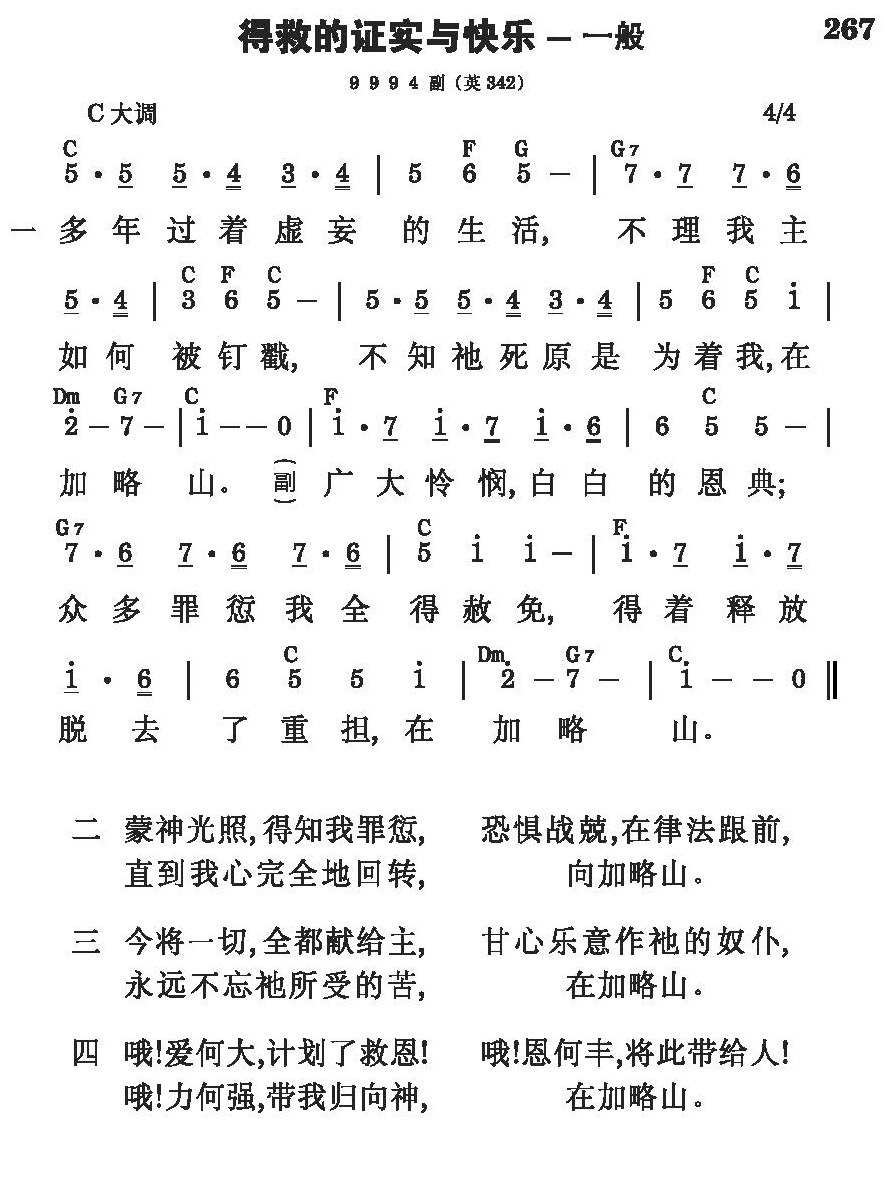 得救的证实与快乐 — 一般 267
9 9 9 4 副（英342）
C大调 4/4
C F G G7
5 · 5 5 · 4 3 · 4 | 5 6 5 – | 7 · 7 7 · 6
一 多年过着虚妄的生活, 不理我主
C F C F C
5 · 4 | 3 6 5 – | 5 · 5 5 · 4 3 · 4 | 5 6 5 i |
如何被钉戳, 不知祂死原是为着我,在
Dm G7 C F C
2̇ – 7 – | i – – 0 | i · 7 i · 7 i · 6 | 6 5 5 – |
加略山。(副)广大怜悯,白白的恩典;
G7 C F
7 · 6 7 · 6 7 · 6 | 5 i i – | i · 7 i · 7
众多罪愆我全得赦免, 得着释放
C Dm G7 C
i · 6 | 6 5 5 i | 2̇ – 7 – | i – – 0 ‖
脱去了重担,在加略山。
二 蒙神光照,得知我罪愆, 恐惧战兢,在律法跟前,
直到我心完全地回转, 向加略山。
三 今将一切,全都献给主, 甘心乐意作祂的奴仆,
永远不忘祂所受的苦, 在加略山。
四 哦!爱何大,计划了救恩! 哦!恩何丰,将此带给人!
哦!力何强,带我归向神, 在加略山。